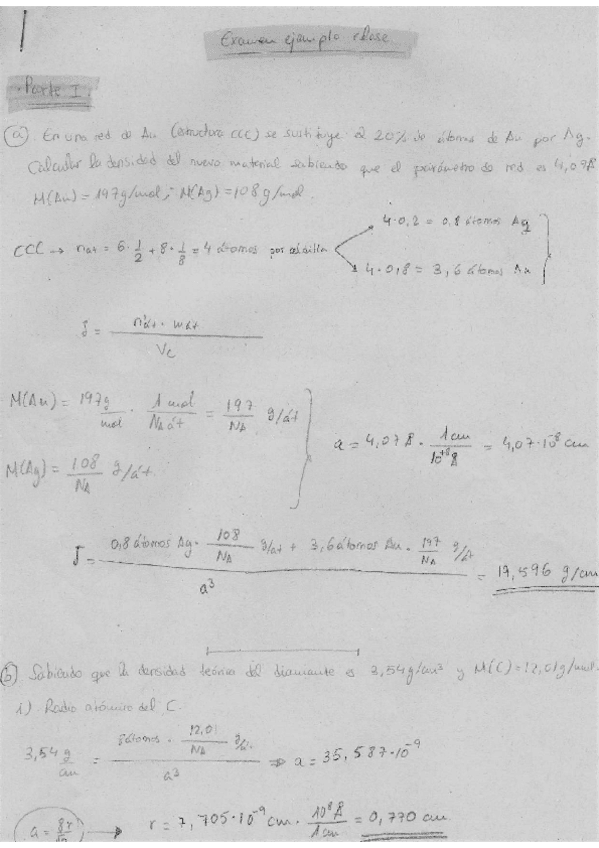 Examen ejemplo clase
Parte I.
a) En una red de Au (estructura CCC) se sustituye el 20% de átomos de Au por Ag.
Calcular la densidad del nuevo material sabiendo que el parámetro de red es 4,07Å
M(Au) = 197g/mol; M(Ag) = 108 g/mol.
4·0,2 = 0,8 átomos Ag
CCC → nat = 6·1/2 + 8·1/8 = 4 átomos por celdilla
4·0,8 = 3,6 átomos Au
δ = nºát · mát / Vc
M(Au) = 197g/mol · 1 mol/NA át = 197/NA g/át
a = 4,07 Å · 1cm/10⁺⁸Å = 4,07·10⁻⁸ cm
M(Ag) = 108/NA g/át.
δ = (0,8 átomos Ag · 108/NA g/át + 3,6 átomos Au · 197/NA g/át) / a³ = 19,596 g/cm
b) Sabiendo que la densidad teórica del diamante es 3,54g/cm³ y M(C) = 12,01g/mol.
i) Radio atómico del C.
3,54 g/cm = (8 átomos · 12,01/NA g/át.) / a³ ⇒ a = 35,587·10⁻⁹
a = 8r/√3 → r = 7,705·10⁻⁹ cm · 10⁸Å/1cm = 0,770 cm